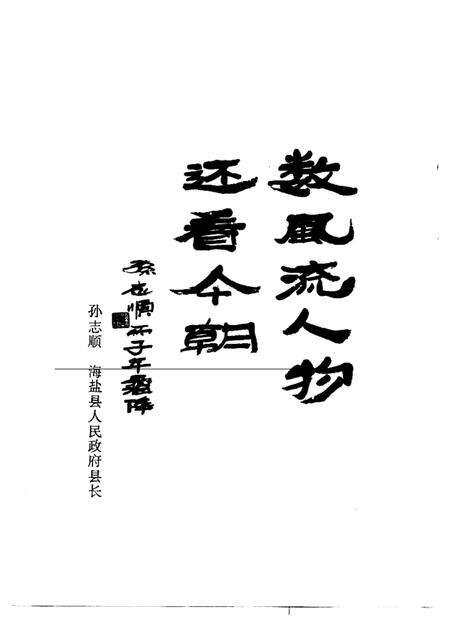 数风流人物
还看今朝
孙志顺 丙子年霜降
孙志顺 海盐县人民政府县长